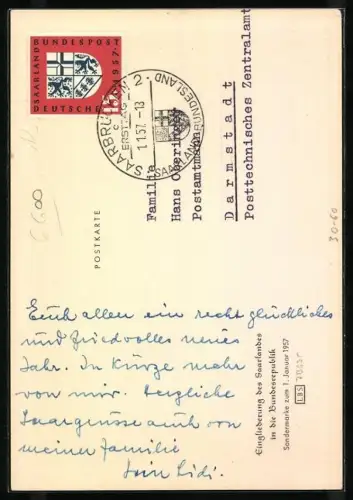 SAARLAND
BUNDESPOST
1957
DEUTSCHE
SAARBRÜCKEN 2
ERSTTAG
1.1.57.-18
SAARLAND BUNDESLAND
Familie
Hans
Postamtmann
Darmstadt
Posttechnisches Zentralamt
POSTKARTE
6600
30-60
Euch allen ein recht glückliches
und friedvolles neues
Jahr. In Kürze mehr
von mir. Herzliche
Saargrüsse auch von
meiner Familie
Eingliederung des Saarlandes
in die Bundesrepublik
Sondermarke zum 1. Januar 1957
LBS